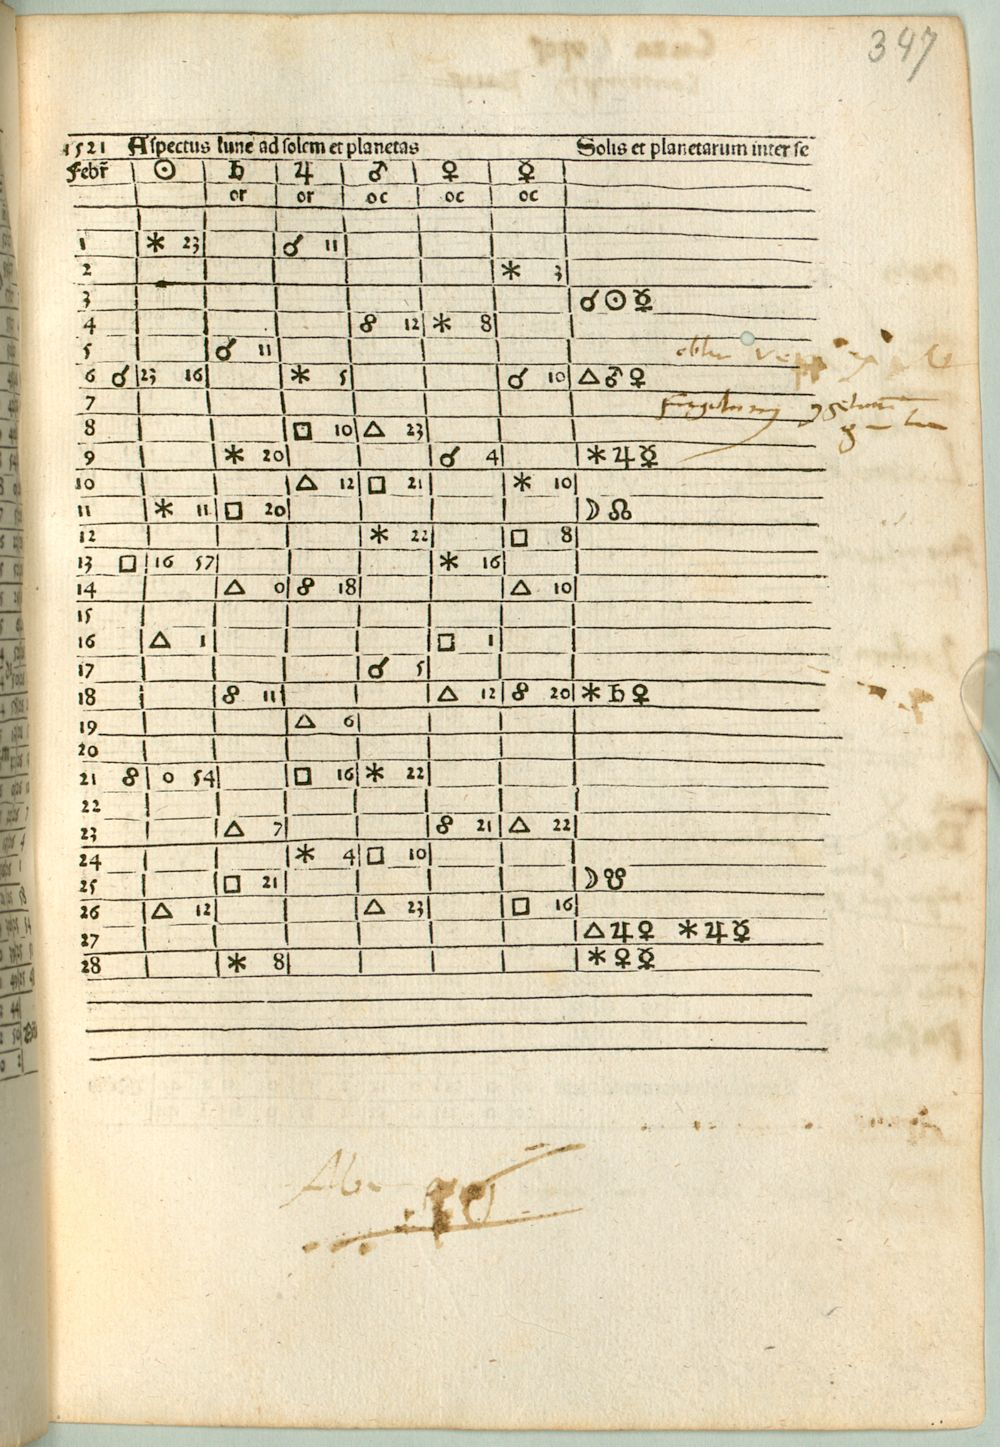 347
1521 Aspectus lune ad solem et planetas Solis et planetarum inter se
Febr̄ ☉ ♄ ♃ ♂ ♀ ☿
or or oc oc oc
1 ⚹ 23 ☌ 11
2 ⚹ 3
3 ☌ ☉ ☿
4 ☍ 12 ⚹ 8
5 ☌ 11
6 ☌ 23 16 ⚹ 5 ☌ 10 △ ♂ ♀
7
8 □ 10 △ 23
9 ⚹ 20 ☌ 4 ⚹ ♃ ☿
10 △ 12 □ 21 ⚹ 10
11 ⚹ 11 □ 20 ☽ ☊
12 ⚹ 22 □ 8
13 □ 16 57 ⚹ 16
14 △ 0 ☍ 18 △ 10
15
16 △ 1 □ 1
17 ☌ 5
18 ☍ 11 △ 12 ☍ 20 ⚹ ♄ ♀
19 △ 6
20
21 ☍ 0 54 □ 16 ⚹ 22
22
23 △ 7 ☍ 21 △ 22
24 ⚹ 4 □ 10
25 □ 21 ☽ ☋
26 △ 12 △ 23 □ 16
27 △ ♃ ♀ ⚹ ♃ ☿
28 ⚹ 8 ⚹ ♀ ☿